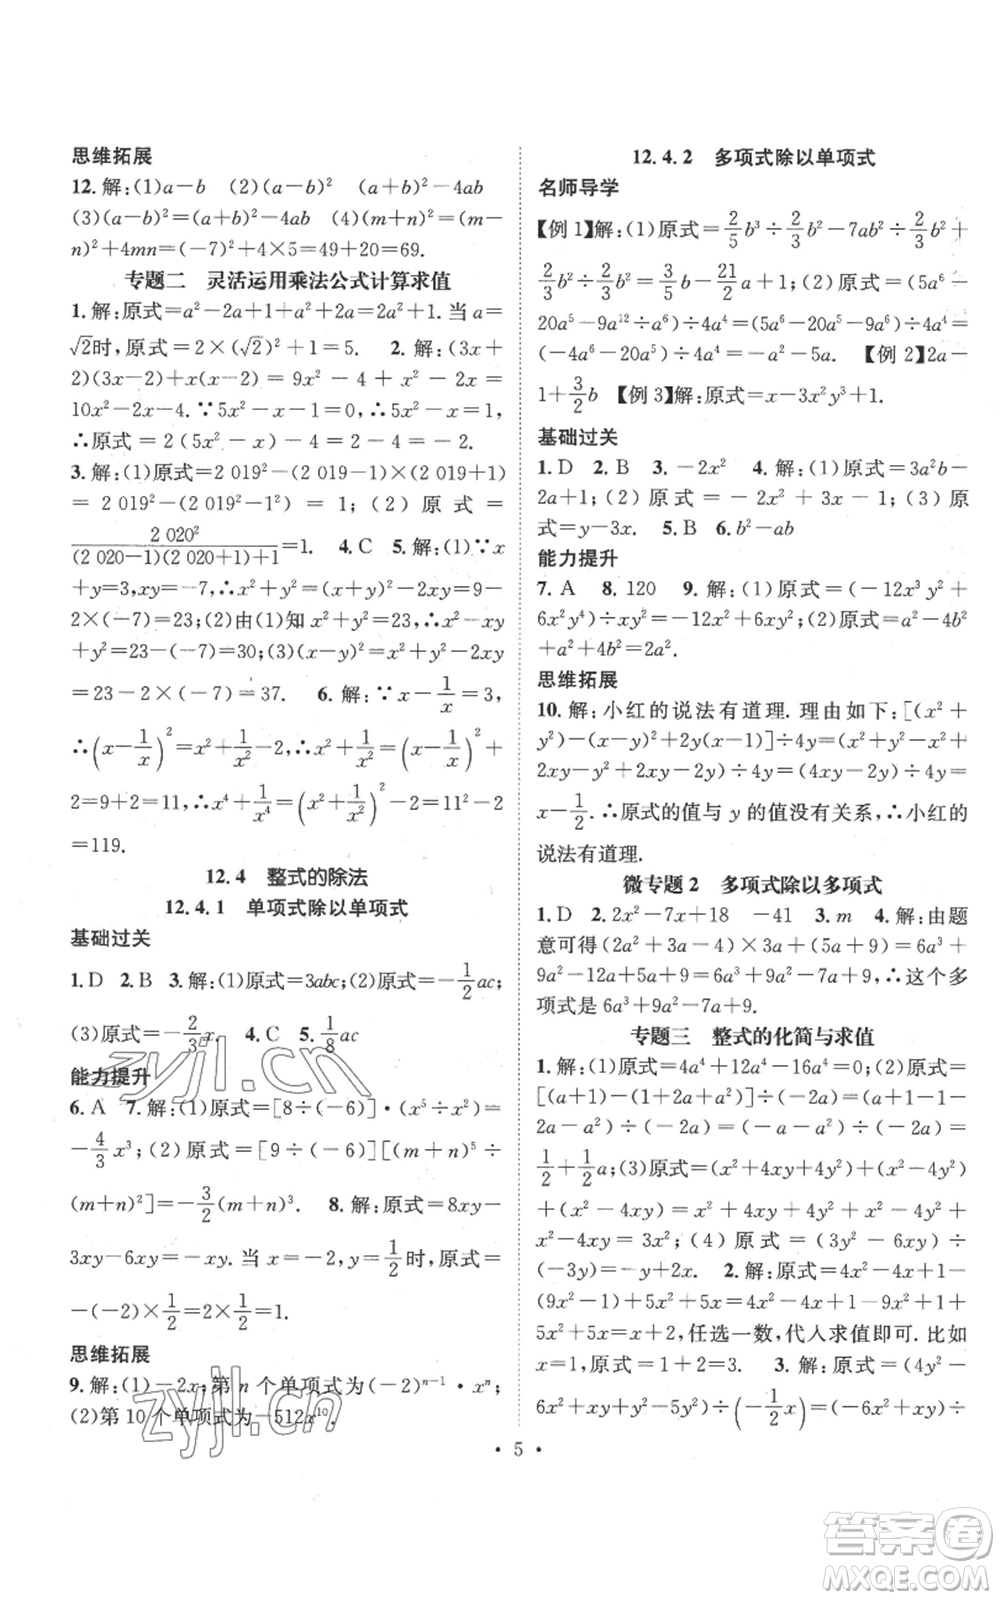 思维拓展
12. 解:(1)a-b (2)(a-b)² (a+b)²-4ab
(3)(a-b)²=(a+b)²-4ab (4)(m+n)²=(m-
n)²+4mn=(-7)²+4×5=49+20=69.
专题二 灵活运用乘法公式计算求值
1. 解:原式=a²-2a+1+a²+2a=2a²+1. 当 a=
√2时,原式=2×(√2)²+1=5. 2. 解:(3x+
2)(3x-2)+x(x-2)=9x²-4+x²-2x=
10x²-2x-4. ∵5x²-x-1=0,∴5x²-x=1,
∴原式=2(5x²-x)-4=2-4=-2.
3. 解:(1)原式=2 019²-(2 019-1)×(2 019+1)
=2 019²-(2 019²-1²)=1;(2)原式=
2 020²/((2 020-1)(2 020+1)+1)=1. 4. C 5. 解:(1)∵x
+y=3,xy=-7,∴x²+y²=(x+y)²-2xy=9-
2×(-7)=23;(2)由(1)知 x²+y²=23,∴x²-xy
+y²=23-(-7)=30;(3)(x-y)²=x²+y²-2xy
=23-2×(-7)=37. 6. 解:∵x-1/x=3,
∴(x-1/x)²=x²+1/x²-2,∴x²+1/x²=(x-1/x)²+
2=9+2=11,∴x⁴+1/x⁴=(x²+1/x²)²-2=11²-2
=119.
12.4 整式的除法
12.4.1 单项式除以单项式
基础过关
1. D 2. B 3. 解:(1)原式=3abc;(2)原式=-1/2 ac;
(3)原式=-2/3 x. 4. C 5. 1/8 ac
能力提升
6. A 7. 解:(1)原式=[8÷(-6)]·(x⁵÷x²)=
-4/3 x³;(2)原式=[9÷(-6)][(m+n)⁵÷
(m+n)²]=-3/2(m+n)³. 8. 解:原式=8xy-
3xy-6xy=-xy. 当 x=-2,y=1/2时,原式=
-(-2)×1/2=2×1/2=1.
思维拓展
9. 解:(1)-2x;第 n 个单项式为(-2)ⁿ⁻¹·xⁿ;
(2)第 10 个单项式为-512x¹⁰.
12.4.2 多项式除以单项式
名师导学
【例 1】解:(1)原式=2/5 b³÷2/3 b²-7ab²÷2/3 b²+
2/3 b²÷2/3 b²=3/5 b-21/2 a+1;(2)原式=(5a⁶-
20a⁵-9a¹²÷a⁶)÷4a⁴=(5a⁶-20a⁵-9a⁶)÷4a⁴=
(-4a⁶-20a⁵)÷4a⁴=-a²-5a. 【例 2】2a-
1+3/2 b 【例 3】解:原式=x-x²y³+1.
基础过关
1. D 2. B 3. -2x² 4. 解:(1)原式=3a²b-
2a+1;(2)原式=-2x²+3x-1;(3)原
式=y-3x. 5. B 6. b²-ab
能力提升
7. A 8. 120 9. 解:(1)原式=(-12x³y²+
6x²y⁴)÷xy²=-12x²+6xy²;(2)原式=a²-4b²
+a²+4b²=2a².
思维拓展
10. 解:小红的说法有道理. 理由如下:[(x²+
y²)-(x-y)²+2y(x-1)]÷4y=(x²+y²-x²+
2xy-y²+2xy-2y)÷4y=(4xy-2y)÷4y=
x-1/2. ∴原式的值与 y 的值没有关系,∴小红的
说法有道理.
微专题 2 多项式除以多项式
1. D 2. 2x²-7x+18 -41 3. m 4. 解:由题
意可得(2a²+3a-4)×(3a)+(5a+9)=6a³+
9a²-12a+5a+9=6a³+9a²-7a+9,∴这个多
项式是 6a³+9a²-7a+9.
专题三 整式的化简与求值
1. 解:(1)原式=4a⁴+12a⁴-16a⁴=0;(2)原式=
[(a+1-1)-2a(a+1)]÷(-2a)=(a+1-1-
2a²-2a)÷(-2a)=(-a-2a²)÷(-2a)=
1/2+1/2 a;(3)原式=(x²+4xy+4y²)-(x²-4y²)
+(x²-4xy)=x²+4xy+4y²-x²+4y²+
x²-4xy=x²+8y²;(4)原式=(2x³-6xy)÷
(-2x)=-x²+3y. 2. 解:原式=4x²-4x+1-
(9x²-1)+5x²+5x=4x²-4x+1-9x²+1+
5x²+5x=x+2,任选一数,代入求值即可. 比如
x=1,原式=1+2=3. 3. 解:原式=(4x²-
6x²+xy+xy+y²-y²)÷(-1/2 x)=(-2x²+2xy)÷
·5·
zyjl.cn
zyjl.cn
答案圈
MXQE.COM